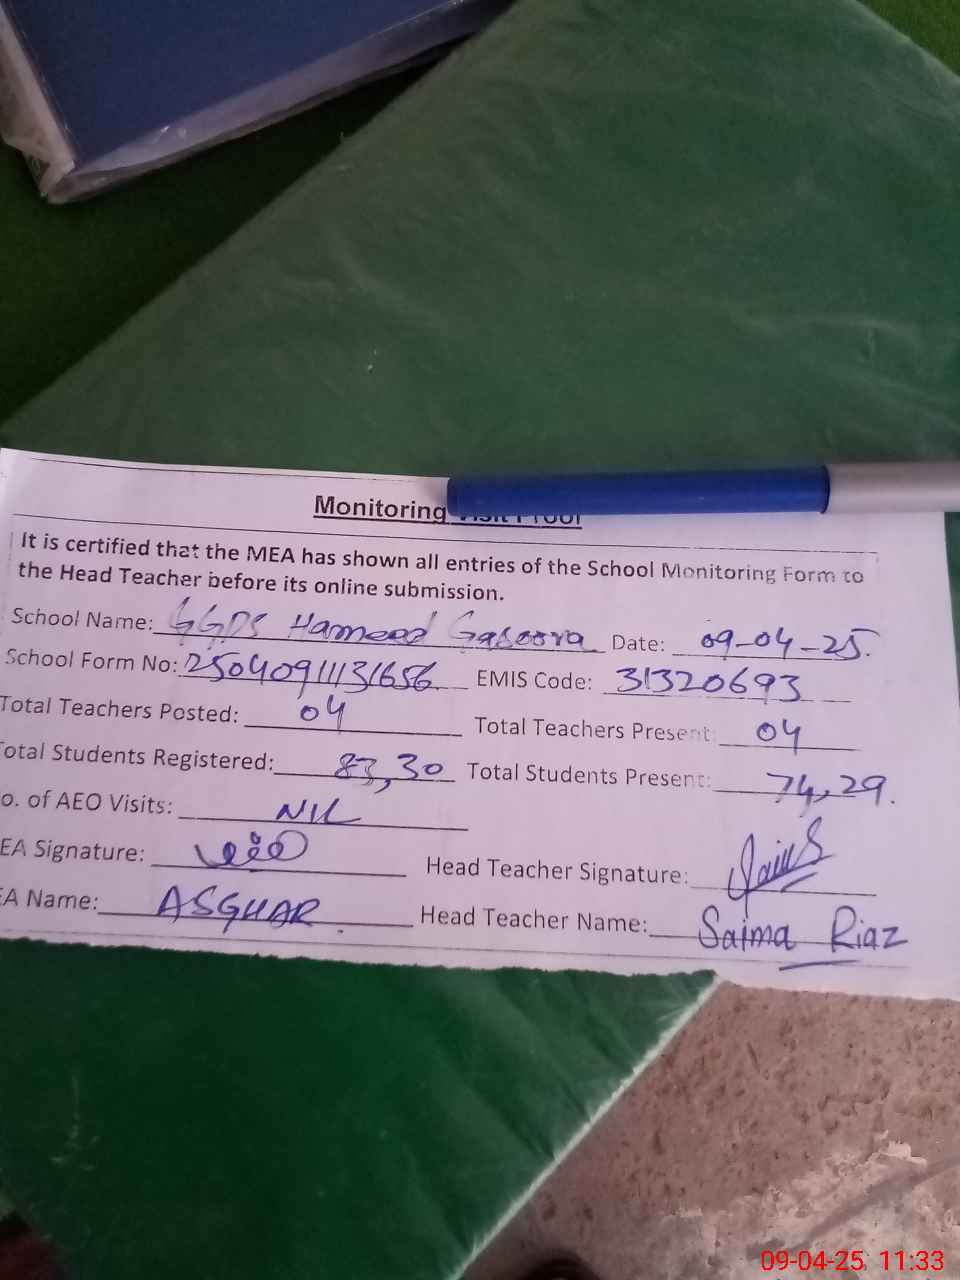 Monitoring Visit Proof
It is certified that the MEA has shown all entries of the School Monitoring Form to
the Head Teacher before its online submission.
School Name: GGPS Hameed Gasoora Date: 09-04-25.
School Form No: 25040911131656 EMIS Code: 31320693
Total Teachers Posted: 04 Total Teachers Present: 04
Total Students Registered: 83,30 Total Students Present: 74,29.
o. of AEO Visits: NIL
EA Signature: Head Teacher Signature:
EA Name: ASGHAR. Head Teacher Name: Saima Riaz
09-04-25 11:33